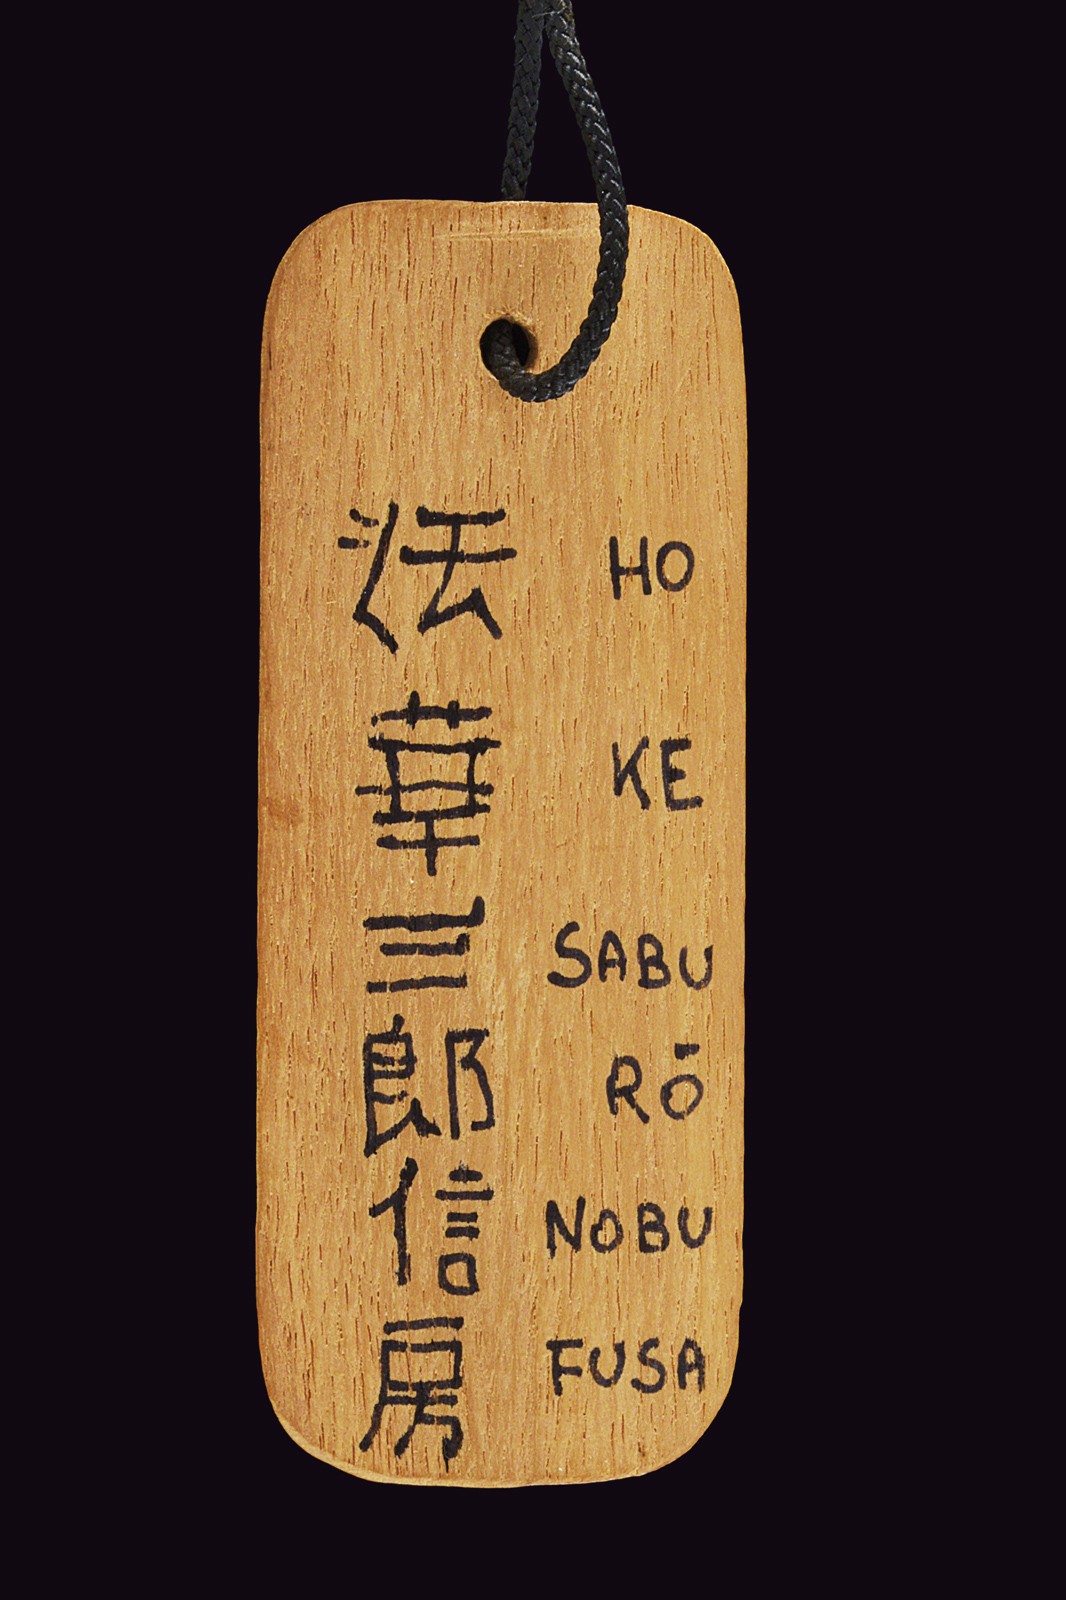 法 HO
華 KE
三 SABU
郎 RŌ
信 NOBU
房 FUSA